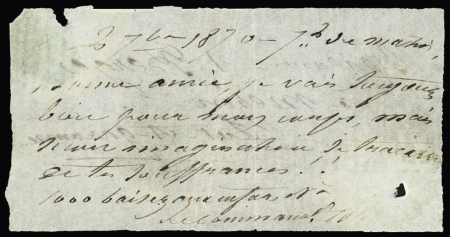 2 7bre 1870 - 7h de matin,
Bonne amie, je vais toujours
bien pour mon corps, mais
mon imagination se tracasse
de tes souffrances.
1000 baisers aux enfans
Le command